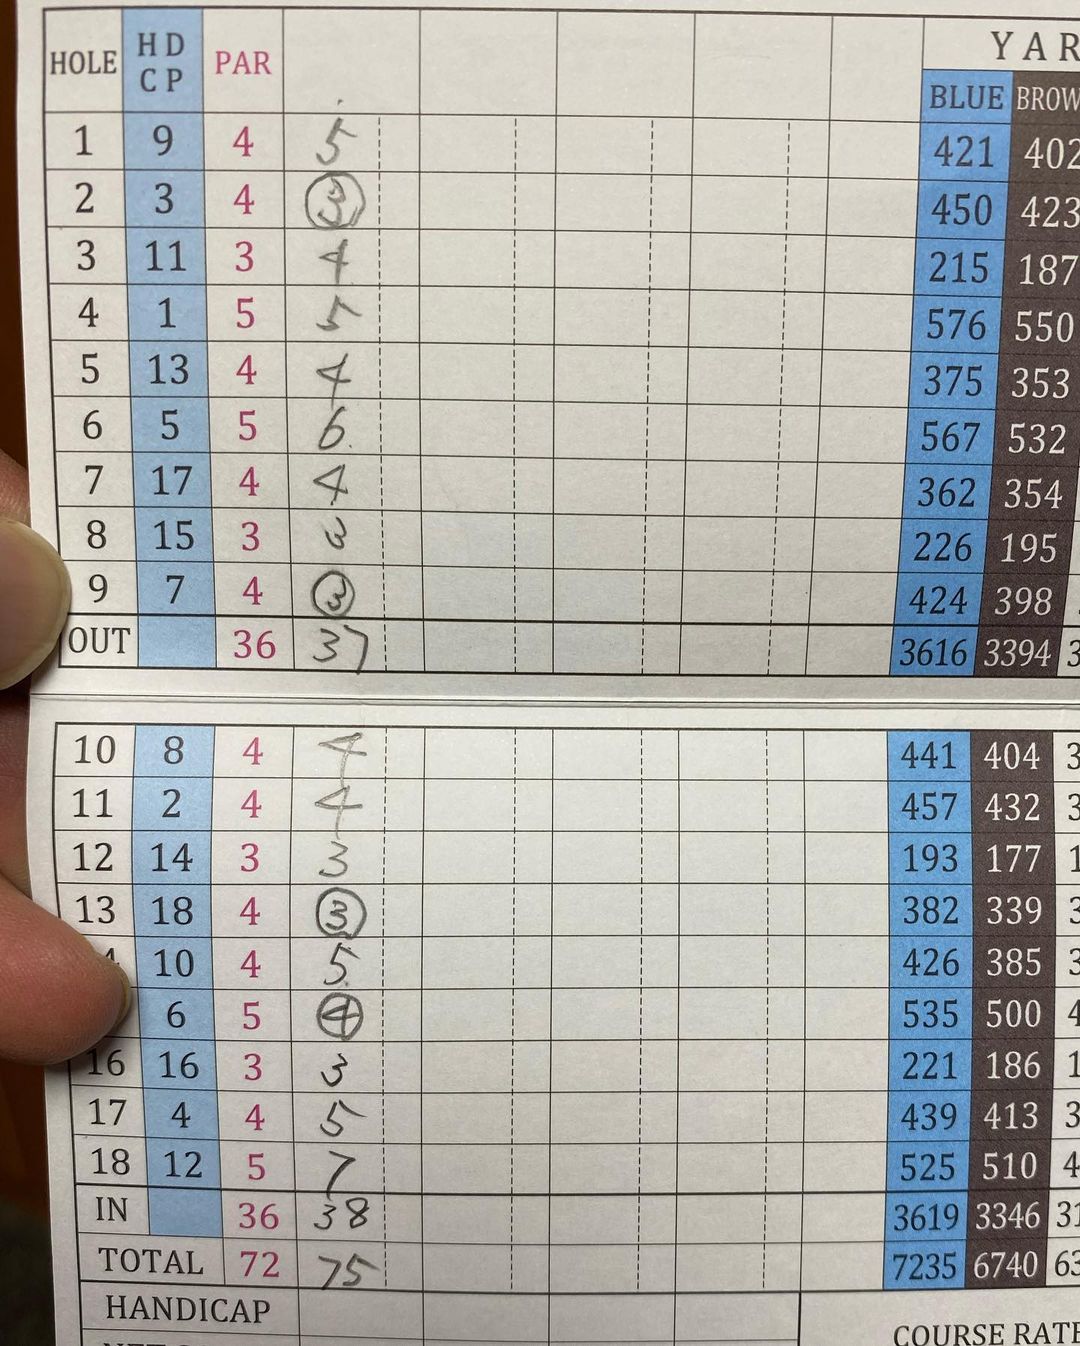 HOLE HDCP PAR YAR
BLUE BROW
1 9 4 5 421 402
2 3 4 3 450 423
3 11 3 4 215 187
4 1 5 5 576 550
5 13 4 4 375 353
6 5 5 6 567 532
7 17 4 4 362 354
8 15 3 3 226 195
9 7 4 3 424 398
OUT 36 37 3616 3394 3
10 8 4 4 441 404 3
11 2 4 4 457 432 3
12 14 3 3 193 177 1
13 18 4 3 382 339 3
10 4 5 426 385 3
6 5 4 535 500 4
16 16 3 3 221 186 1
17 4 4 5 439 413 3
18 12 5 7 525 510 4
IN 36 38 3619 3346 31
TOTAL 72 75 7235 6740 63
HANDICAP
COURSE RATE